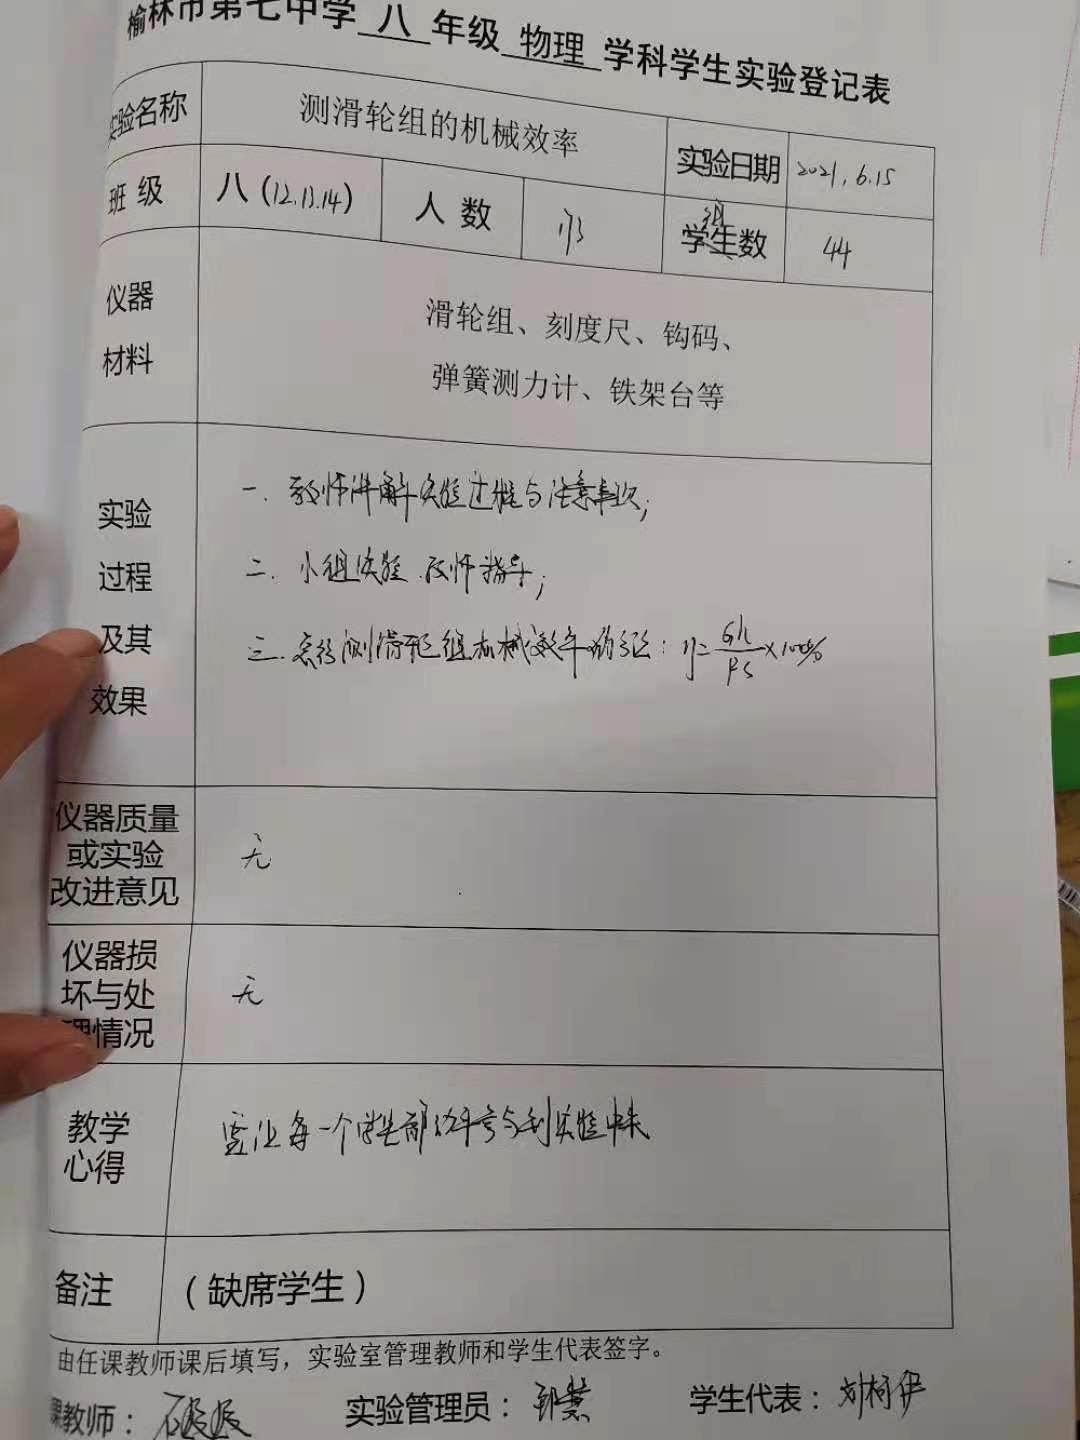 榆林市第七中学 八 年级 物理 学科学生实验登记表
实验名称 测滑轮组的机械效率 实验日期 2021.6.15
班级 八(12.13.14) 人数 组 学生数 44
仪器 材料
滑轮组、刻度尺、钩码、
弹簧测力计、铁架台等
实验 过程 及其 效果
一. 教师讲解实验过程与注意事项;
二. 小组实验 教师指导;
三. 会测滑轮组机械效率的方法: η=Gh/FS×100%
仪器质量
或实验
改进意见
无
仪器损
坏与处
理情况
无
教学
心得
要让每一个学生都动手参与到实验中来
备注 (缺席学生)
由任课教师课后填写，实验室管理教师和学生代表签字。
课教师: 实验管理员: 学生代表: